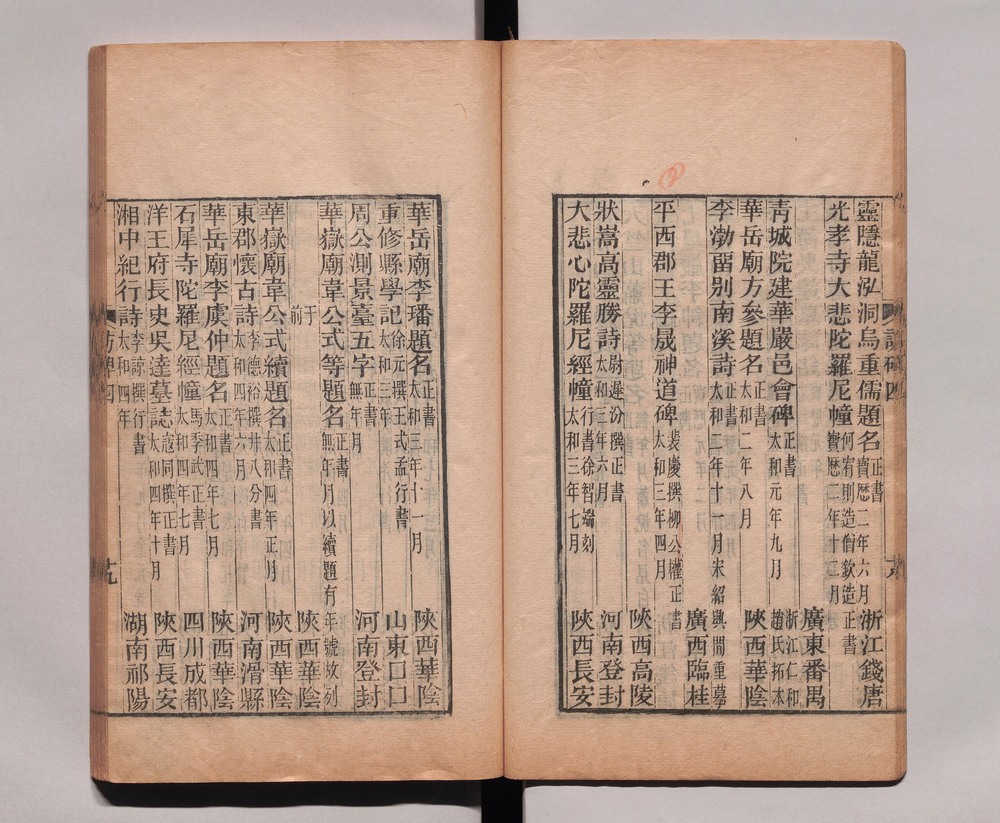 靈隱龍泓洞烏重儒題名正書寶歷二年六月浙江錢唐
光孝寺大悲陀羅尼幢何宥則造僧欽造正書寶歷二年十二月廣東番禺
青城院建華嚴邑會碑正書太和元年九月浙江仁和趙氏拓本
華岳廟方參題名正書太和二年八月陝西華陰
李渤留别南溪詩正書太和二年十一月宋紹興間重摹廣西臨桂
平西郡王李晟神道碑裴慶撰柳公權正書太和三年四月陝西高陵
狀嵩高靈勝詩尉遲汾撰正書太和三年六月河南登封
大悲心陀羅尼經幢行書徐智端刻太和三年七月陝西長安
華岳廟李璠題名正書太和三年十一月陝西華陰
重修縣學記徐元撰王式孟行書太和三年山東口口
周公測景臺五字正書無年月河南登封
華嶽廟韋公式等題名正書無年月以續題有年號故列于前陝西華陰
華嶽廟韋公式續題名正書太和四年正月陝西華陰
東郡懷古詩李德裕撰并八分書太和四年六月河南滑縣
華岳廟李虞仲題名正書太和四年七月陝西華陰
石犀寺陀羅尼經幢馬季武正書太和四年七月四川成都
洋王府長史吳達墓誌寇同撰正書太和四年十月陝西長安
湘中紀行詩李諒撰行書太和四年湖南祁陽